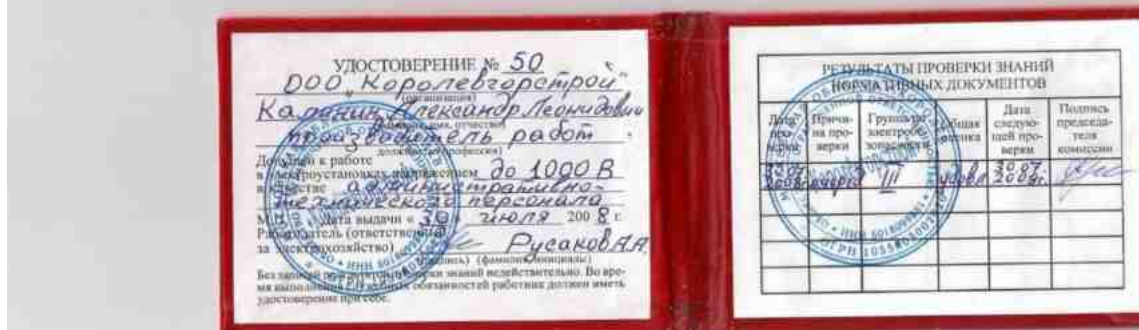 УДОСТОВЕРЕНИЕ № 50
ООО "Королевгорстрой"
(организация)
Калинин Александр Леонидович
(фамилия, имя, отчество)
производитель работ
должность (профессия)
Допущен к работе
в электроустановках напряжением до 1000 В
в качестве административно-
технического персонала
М.П. Дата выдачи « 30 » июля 2008 г.
Работодатель (ответственный
за электрохозяйство) Русаков А.А.
(подпись) (фамилия, инициалы)
Без записей результатов проверки знаний недействительно. Во вре-
мя выполнения служебных обязанностей работник должен иметь
удостоверение при себе.
РЕЗУЛЬТАТЫ ПРОВЕРКИ ЗНАНИЙ
НОРМАТИВНЫХ ДОКУМЕНТОВ
Дата про-верки
Причи-на про-верки
Группа по электробе-зопасности
Общая оценка
Дата следую-щей про-верки
Подпись председа-теля комиссии
30.07 2008г. очеред III удовл 30.07 2009г.